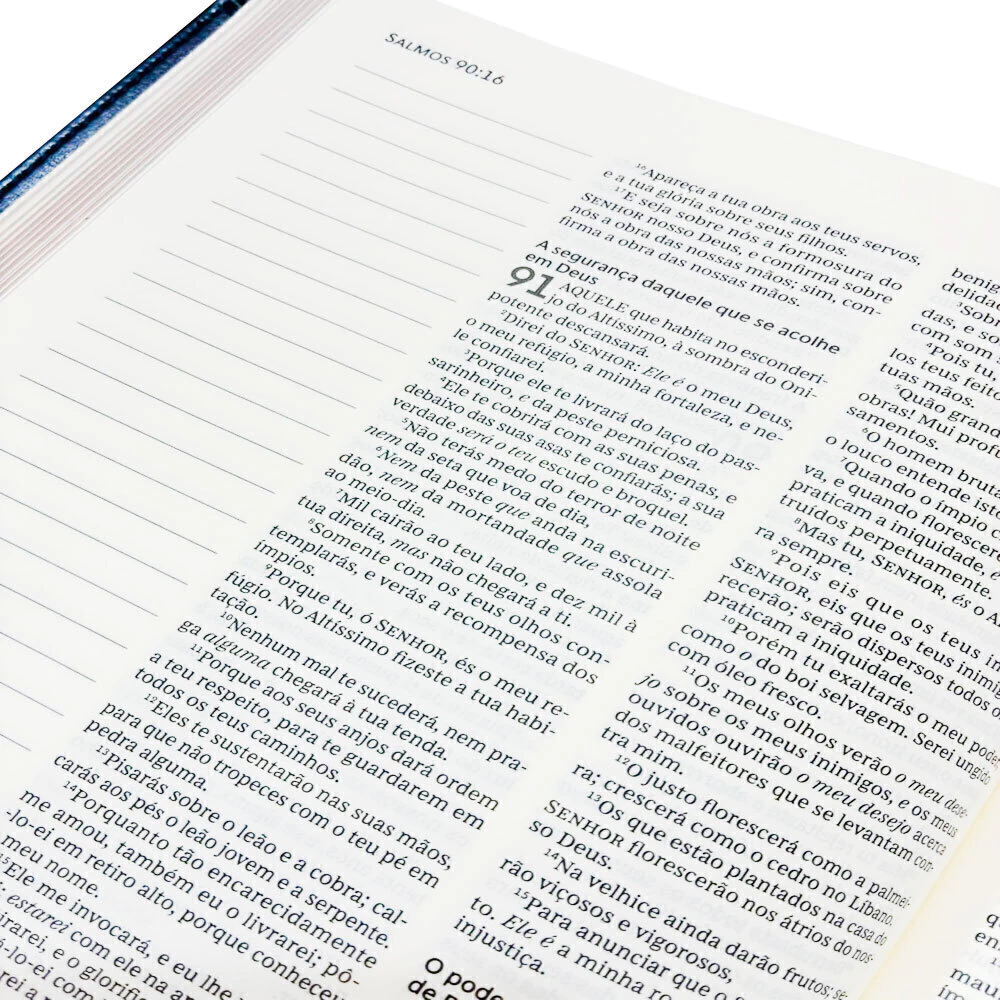 SALMOS 90:16
16Apareça a tua obra aos teus servos,
e a tua glória sobre seus filhos.
17E seja sobre nós a formosura do
SENHOR nosso Deus, e confirma sobre
nós a obra das nossas mãos; sim, con-
firma a obra das nossas mãos.
A segurança daquele que se acolhe
em Deus
91 AQUELE que habita no esconderi-
jo do Altíssimo, à sombra do Oni-
potente descansará.
2Direi do SENHOR: Ele é o meu Deus,
o meu refúgio, a minha fortaleza, e ne-
le confiarei.
3Porque ele te livrará do laço do pas-
sarinheiro, e da peste perniciosa.
4Ele te cobrirá com as suas penas, e
debaixo das suas asas te confiarás; a sua
verdade será o teu escudo e broquel.
5Não terás medo do terror de noite
nem da seta que voa de dia,
6Nem da peste que anda na escuri-
dão, nem da mortandade que assola
ao meio-dia.
7Mil cairão ao teu lado, e dez mil à
tua direita, mas não chegará a ti.
8Somente com os teus olhos con-
templarás, e verás a recompensa dos
ímpios.
9Porque tu, ó SENHOR, és o meu re-
fúgio. No Altíssimo fizeste a tua habi-
tação.
10Nenhum mal te sucederá, nem pra-
ga alguma chegará à tua tenda.
11Porque aos seus anjos dará ordem
a teu respeito, para te guardarem em
todos os teus caminhos.
12Eles te sustentarão nas suas mãos,
para que não tropeces com o teu pé em
pedra alguma.
13Pisarás sobre o leão e a cobra; cal-
carás aos pés o leão jovem e a serpente.
14Porquanto tão encarecidamente
me amou, também eu o livrarei; pô-
-lo-ei em retiro alto, porque conheceu
meu nome.
15Ele me invocará, e eu lhe
estarei com ele na
e o glorific
-lo-ei com
benig
delidad
3Sobr
das, e so
com som
4Pois tu,
los teus feito
tuas mãos.
5Quão grand
obras! Mui prof
samentos.
6O homem bruta
o louco entende ist
7Quando o ímpio c
va, e quando florescere
praticam a iniquidade, é
truídos perpetuamente.
8Mas tu, SENHOR, és o A
ra sempre.
9Pois eis que os teus ini
SENHOR, eis que os teus inimig
recerão; serão dispersos todos o
praticam a iniquidade.
10Porém tu exaltarás o meu poder
como o do boi selvagem. Serei ungido
com óleo fresco.
11Os meus olhos verão o meu dese-
jo sobre os meus inimigos, e os meus
ouvidos ouvirão o meu desejo acerca
dos malfeitores que se levantam con-
tra mim.
12O justo florescerá como a palmei-
ra; crescerá como o cedro no Líbano.
13Os que estão plantados na casa do
SENHOR florescerão nos átrios do nos-
so Deus.
14Na velhice ainda darão frutos; se-
rão viçosos e vigorosos,
15Para anunciar que o
to. Ele é a minha ro
injustiça.
O pode